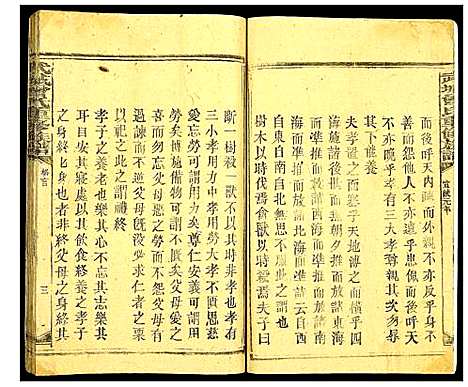 武城曾氏重修族譜 宣統元年
而後呼天內疏而外親不亦反乎身不
善而怨他人不亦遠乎患至而後呼天
不亦晚乎孝有三大孝尊親其次弗辱
其下能養
夫孝置之而塞乎天地溥之而橫乎四
海施諸後世而無朝夕推而放諸東海
而準推而放諸西海而準推而放諸南
海而準推而放諸北海而準詩云自西
自東自南自北無思不服此之謂也
樹木以時伐焉禽獸以時殺焉夫子曰
斷一樹殺一獸不以其時非孝也孝有
三小孝用力中孝用勞大孝不匱思慈
愛忘勞可謂用力矣尊仁安義可謂用
勞矣博施備物可謂不匱矣父母愛之
喜而勿忘父母惡之懼而無怨父母有
過諫而不逆父母既沒必求仁者之粟
以祀之此之謂禮終
孝子之養老也樂其心不違其志樂其
耳目安其寢處以其飲食終養之孝子
之身終終身也者非終父母之身終其
武城曾氏重修族譜 格言 三